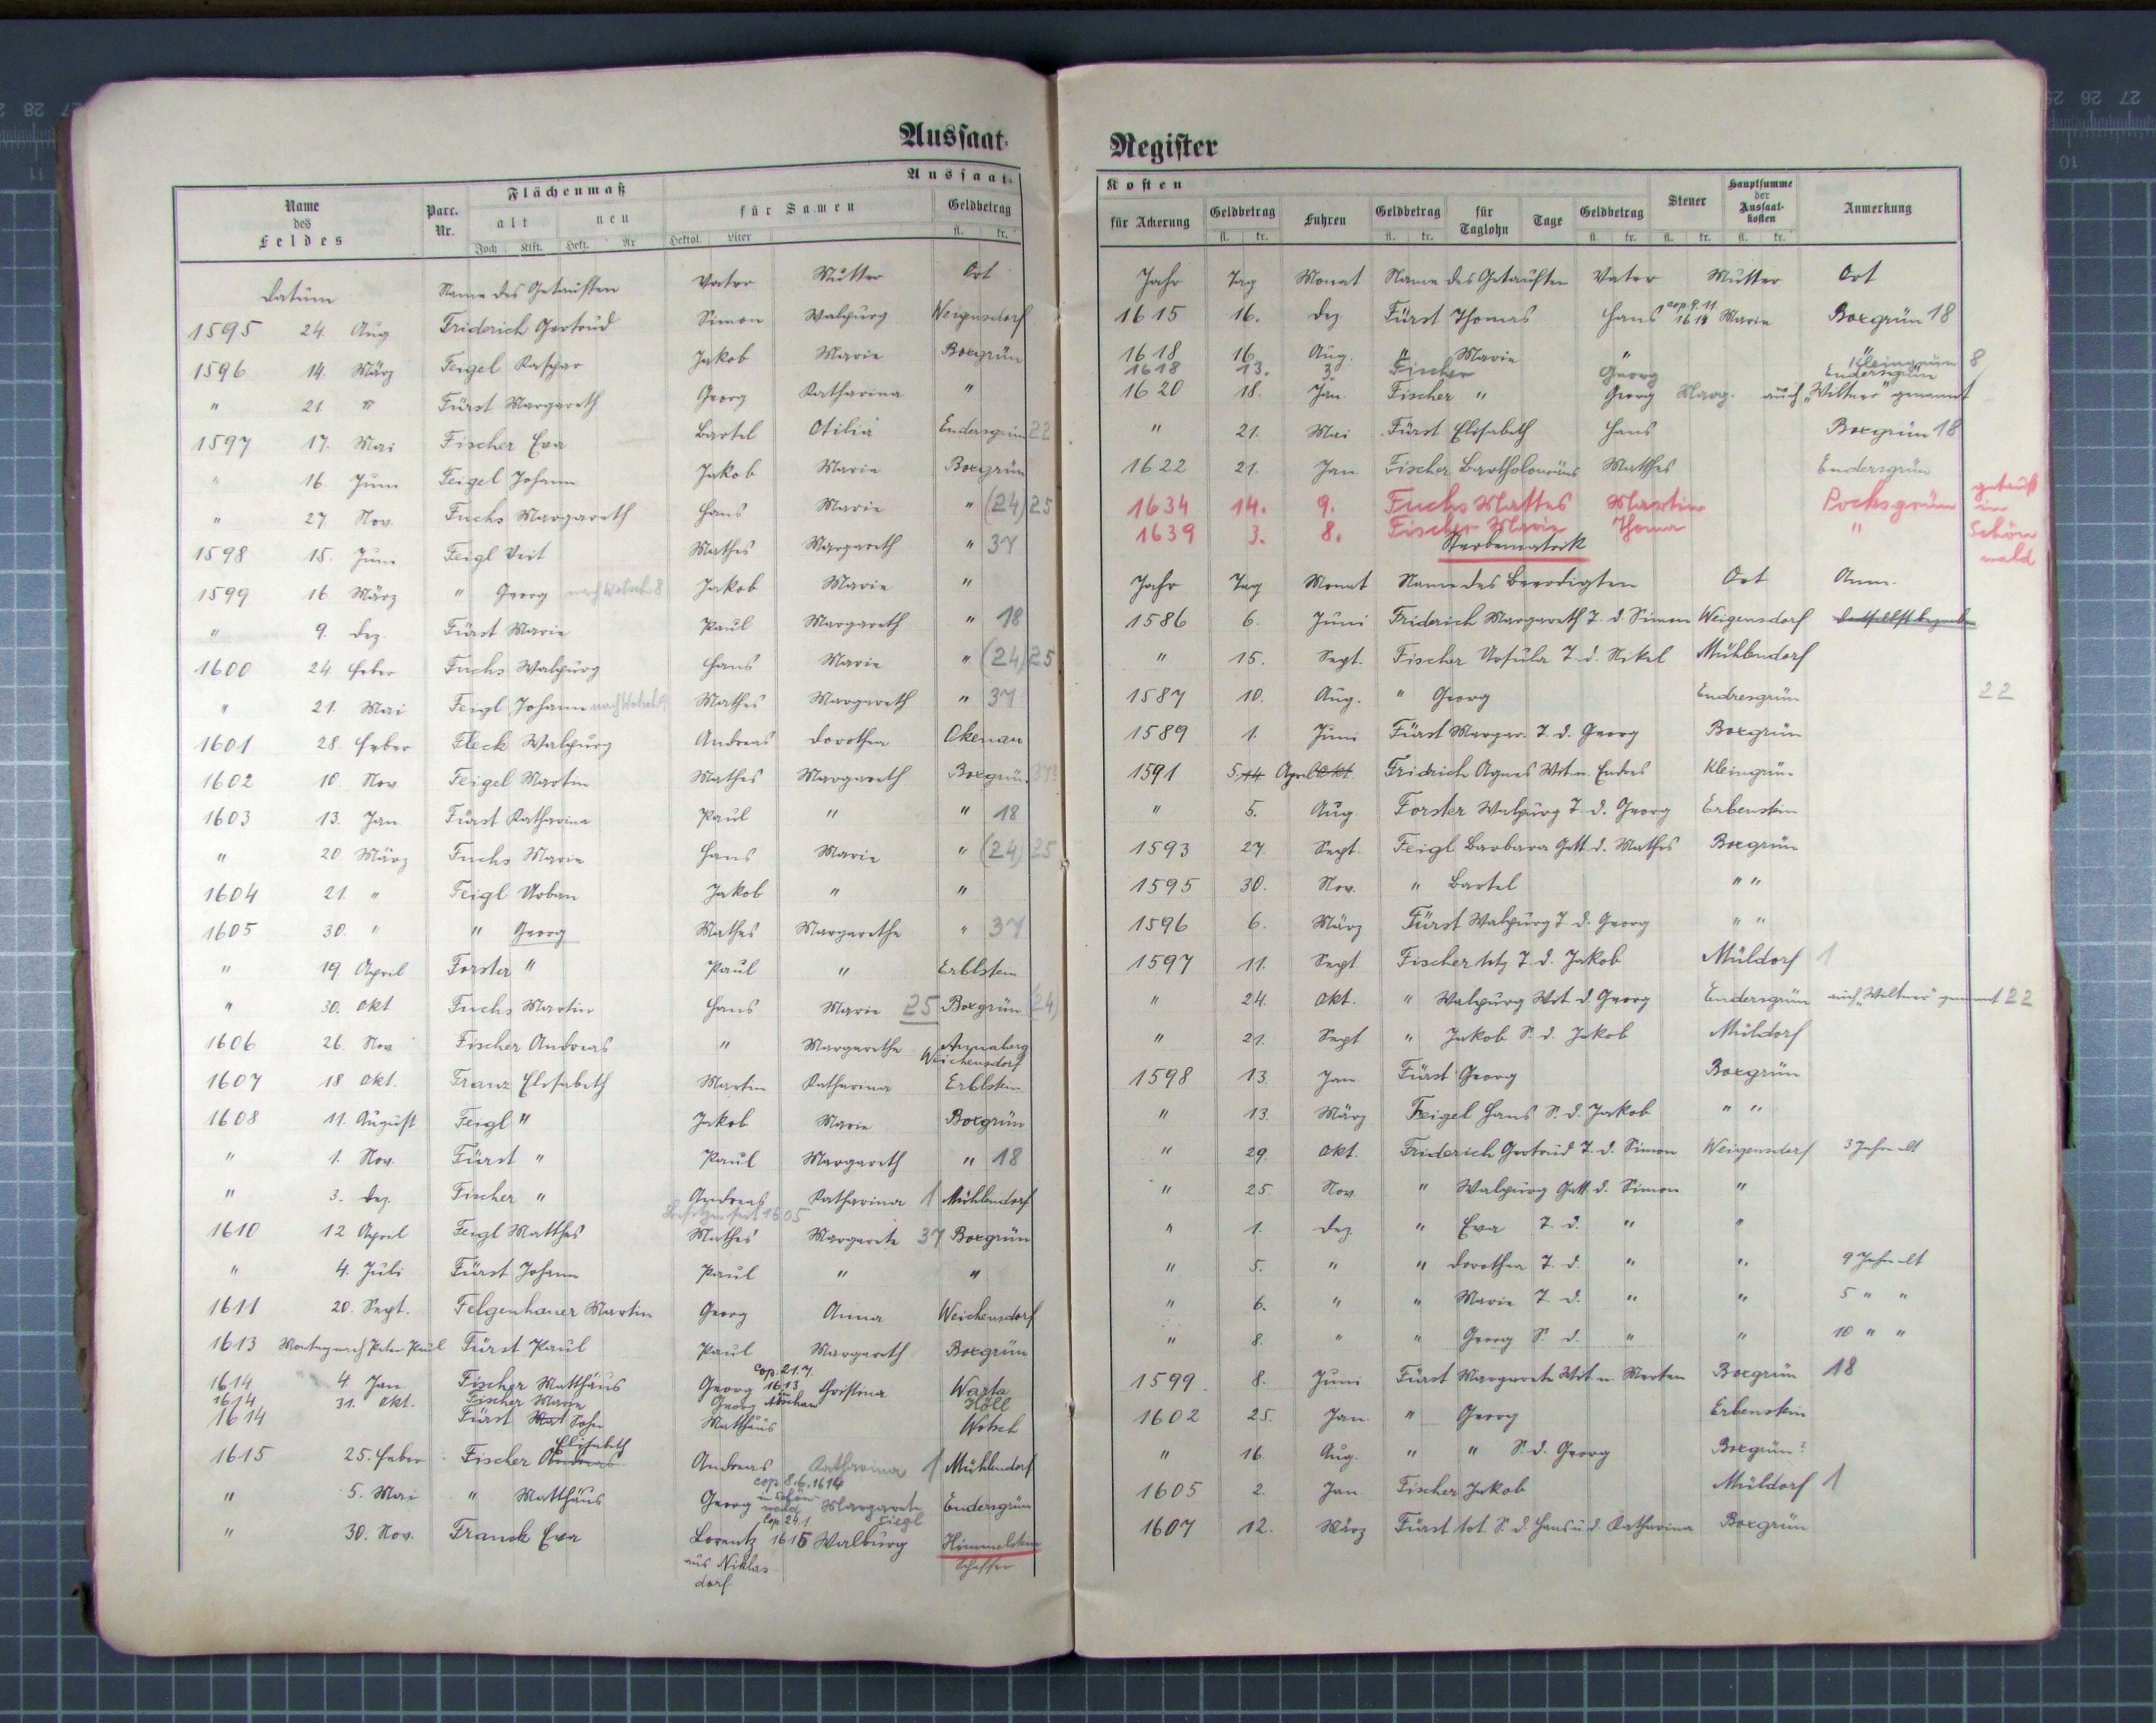 Aussaat-
Aussaat-
Name des Feldes
Parc. Nr.
Flächenmaß
alt neu
für Samen
Geldbetrag
Joch Klft. Hekt. Ar Hektol. Liter fl. kr.
Datum Name des Getauften Vater Mutter Ort
1595 24. Aug Friderich Gertrud Simon Walpurg Weigensdorf
1596 14. März Feigel Kaspar Jakob Marie Boxgrün
" 21. " Fürst Margareth Georg Katharina "
1597 17. Mai Fischer Eva Bartel Otilia Endersgrün 22
" 16. Juni Feigel Johann Jakob Marie Boxgrün
" 27. Nov. Fuchs Margareth Hans Marie " (24) 25
1598 15. Juni Feigl Veit Mathes Margareth " 37
1599 16. März " Georg nach Wotsch 8 Jakob Marie "
" 9. Dez. Fürst Marie Paul Margareth " 18
1600 24. Feber Fuchs Walpurg Hans Marie " (24) 25
" 21. Mai Feigl Johann nach Wotsch 9 Mathes Margareth " 37
1601 28. Feber Fleck Walpurg Andreas Dorothea Okenau
1602 10. Nov Feigel Martin Mathes Margareth Boxgrün 37?
1603 13. Jan Fürst Katharina Paul " " 18
" 20. März Fuchs Marie Hans Marie " (24) 25
1604 21. " Feigl Urban Jakob " "
1605 30. " " Georg Mathes Margarethe " 37
" 19. April Forster " Paul " Erblstein
" 30. Okt Fuchs Martin Hans Marie 25 Boxgrün (24)
1606 26. Nov Fischer Andreas " Margarethe Annaberg
Weichensdorf
1607 18 Okt. Franz Elisabeth Martin Katharina Erblstein
1608 11. August Feigl " Jakob Marie Boxgrün
" 1. Nov. Fürst " Paul Margareth " 18
" 3. Dez. Fischer " Andreas Katharina 1 Mühlendorf
Besitzer seit 1605
1610 12 April Feigl Matthes Mathes Margarete 37 Boxgrün
" 4. Juli Fürst Johann Paul " "
1611 20. Sept. Felgenhauer Martin Georg Anna Weichensdorf
1613 Montag nach Peter Paul Fürst Paul Paul Margareth Boxgrün
cop. 21.7.
1614 4. Jan. Fischer Matthäus Georg 1613 Christina Warta
1614 31. Okt. Fischer Marie Georg Höll
1614 Fürst Sohn Matthäus Wotsch
Elisabeth
1615 25. Feber Fischer Andreas Andreas Katharina 1 Mühlendorf
cop 8.6.1614
" 5. Mai " Matthäus Georg in Schönwald Margarete Endersgrün
Fiegl
Cop. 24.1
" 30. Nov. Franck Eva Lorentz 1615 Walburg Himmelstein
aus Niklasdorf
Schaffer
Register
Kosten
für Ackerung Geldbetrag Fuhren Geldbetrag für Taglohn Tage Geldbetrag Steuer Hauptsumme der Aussaatkosten Anmerkung
fl. kr. fl. kr. fl. kr. fl. kr. fl. kr.
Jahr Tag Monat Name des Getauften Vater Mutter Ort
1615 16. Dez Fürst Thomas Hans cop. 9.11 1614 Marie Boxgrün 18
1618 16 Aug. " Marie " "
1618 13. 3. Fischer Georg Kleingrün 8
Endersgrün
1620 18. Jan. Fischer " Georg Marg. auch "Wiltner" genannt
" 21. Mai Fürst Elisabeth Hans Boxgrün 18
1622 21. Jan Fischer Bartholomäus Matthes Endersgrün
1634 14. 9. Fuchs Mattes Martin Pocksgrün
1639 3. 8. Fischer Marie Thoma "
getauft in Schönwald
Sterbematrik
Jahr Tag Monat Name des Beerdigten Ort Anm.
1586 6. Juni Friderich Margareth T. d. Simon Weigensdorf daselbst begraben
" 15. Sept. Fischer Ursula T. d. Nikel Mühlendorf
1587 10. Aug. " Georg Endresgrün 22
1589 1. Juni Fürst Margar. T. d. Georg Boxgrün
1591 5. 14. April Okt. Fridrich Agnes Wit. n. Endres Kleingrün
" 5. Aug. Forster Walpurg T. d. Georg Erbenstein
1593 27. Sept. Feigl Barbara Gatt. d. Mathes Boxgrün
1595 30. Nov. " Bartel " "
1596 6. März Fürst Walpurg T. d. Georg " "
1597 11. Sept Fischer T. d. Jakob Müldorf 1
" 24. Okt. " Walpurg Wit. d. Georg Endersgrün auch "Wiltner" genannt 22
" 21. Sept " Jakob S. d. Jakob Müldorf
1598 13. Jan Fürst Georg Boxgrün
" 13. März Feigel Hans S. d. Jakob " "
" 29. Okt. Friderich Gertrud T. d. Simon Weigensdorf 3 Jahre alt
" 25 Nov. " Walpurg Gatt. d. Simon "
" 1. Dez. " Eva T. d. " "
" 5. " " Dorothea T. d. " " 9 Jahre alt
" 6. " " Marie T. d. " " 5 " "
" 8. " " Georg S. d. " " 10 " "
1599 8. Juni Fürst Margarete Wit. n. Merten Boxgrün 18
1602 25. Jan. " Georg Erbenstein
" 16. Aug. " " S. d. Georg Boxgrün?
1605 2. Jan Fischer Jakob Müldorf 1
1607 12. März Fürst tot. S. d. Hans u. d. Katharina Boxgrün